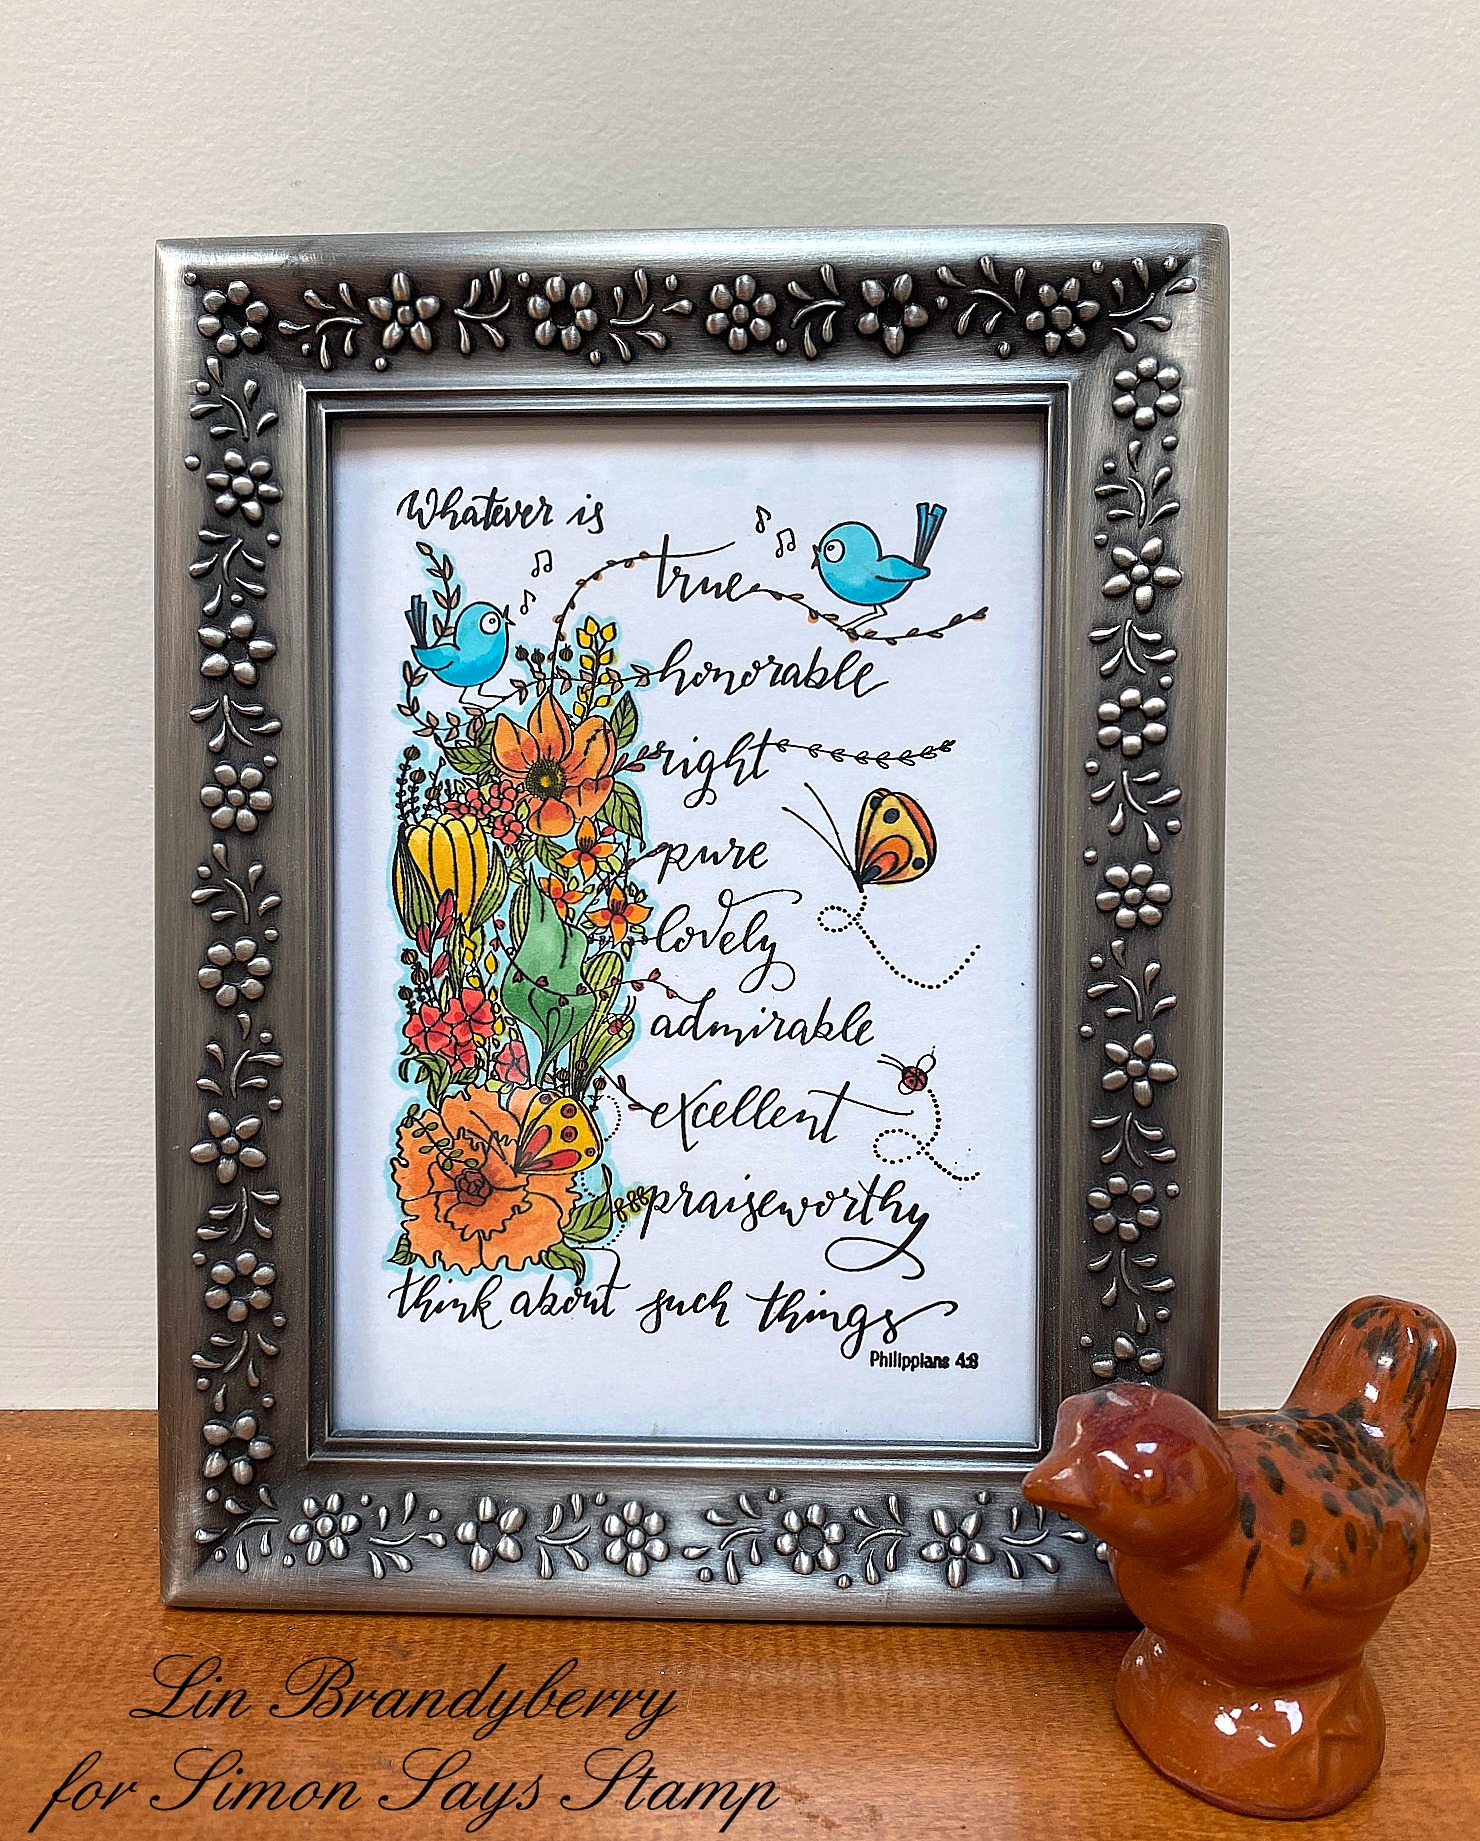 Whatever is
true
honorable
right
pure
lovely
admirable
excellent
praiseworthy
think about such things
Philippians 4:8
Lin Brandyberry
for Simon Says Stamp